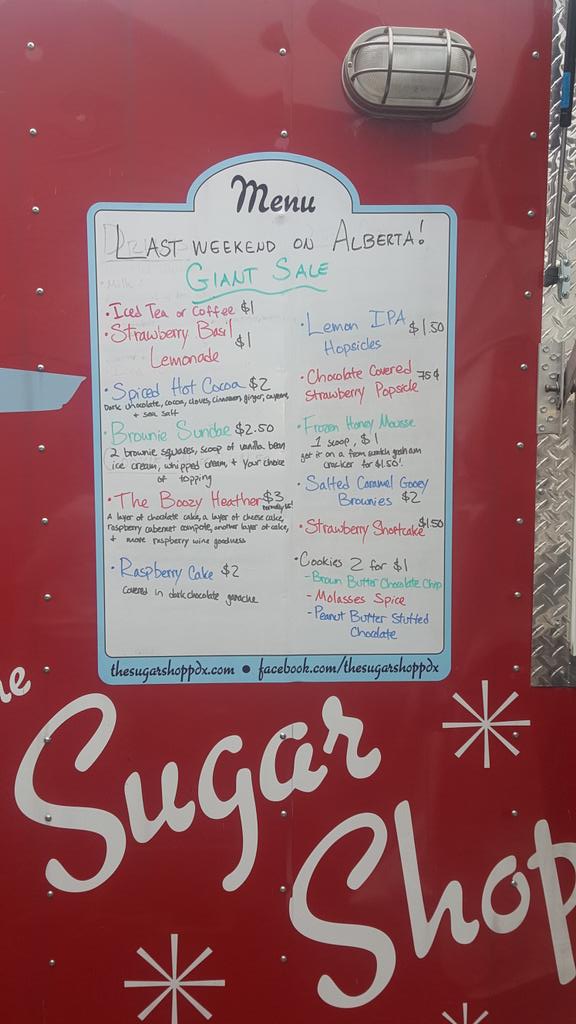 Menu
LAST WEEKEND ON ALBERTA!
GIANT SALE
• Iced Tea or Coffee $1
• Strawberry Basil
Lemonade $1
• Spiced Hot Cocoa $2
Dark chocolate, cocoa, cloves, cinnamon, ginger, cayenne,
+ sea salt
• Brownie Sundae $2.50
2 brownie squares, scoop of vanilla bean
ice cream, whipped cream, + your choice
of topping
• The Boozy Heather $3
A layer of chocolate cake, a layer of cheese cake,
raspberry cabernet compote, another layer of cake,
+ more raspberry wine goodness
• Raspberry Cake $2
Covered in dark chocolate ganache
• Lemon IPA
Hopsicles $1.50
• Chocolate Covered
Strawberry Popsicle 75¢
• Frozen Honey Mousse
1 scoop, $1
get it on a from scratch graham
cracker for $1.50!
• Salted Caramel Gooey
Brownies $2
• Strawberry Shortcake $1.50
• Cookies 2 for $1
- Brown Butter Chocolate Chip
- Molasses Spice
- Peanut Butter Stuffed
Chocolate
thesugarshoppdx.com • facebook.com/thesugarshoppdx
Sugar
Shop